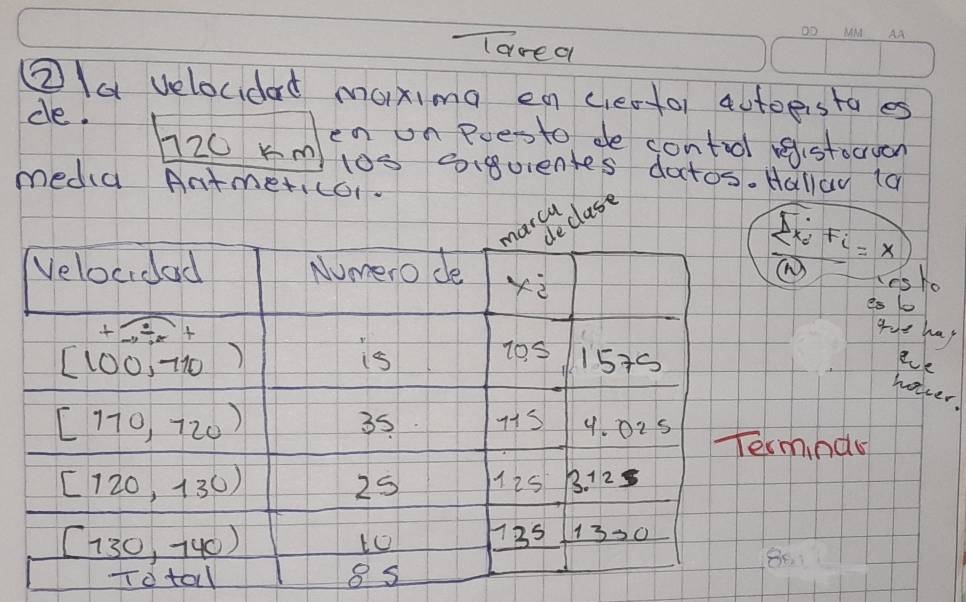 DD MM AA
Tarea
② la velocidad maxima en cierta autopista es
de.
120 km en un Puesto de control registraron
los siguientes datos. Hallar la
media Aritmetica.
marca
de clase
Σxi Fi = x
N
esto
es lo
que hay
que
hacer.
Velocidad Numero de xi
+ ÷ +
[100, 110) 15 105 1575
[110, 120) 35. 115 4.025
[120, 130) 25 125 3.125
[130, 140) 10 135 1350
Total 85
Terminar